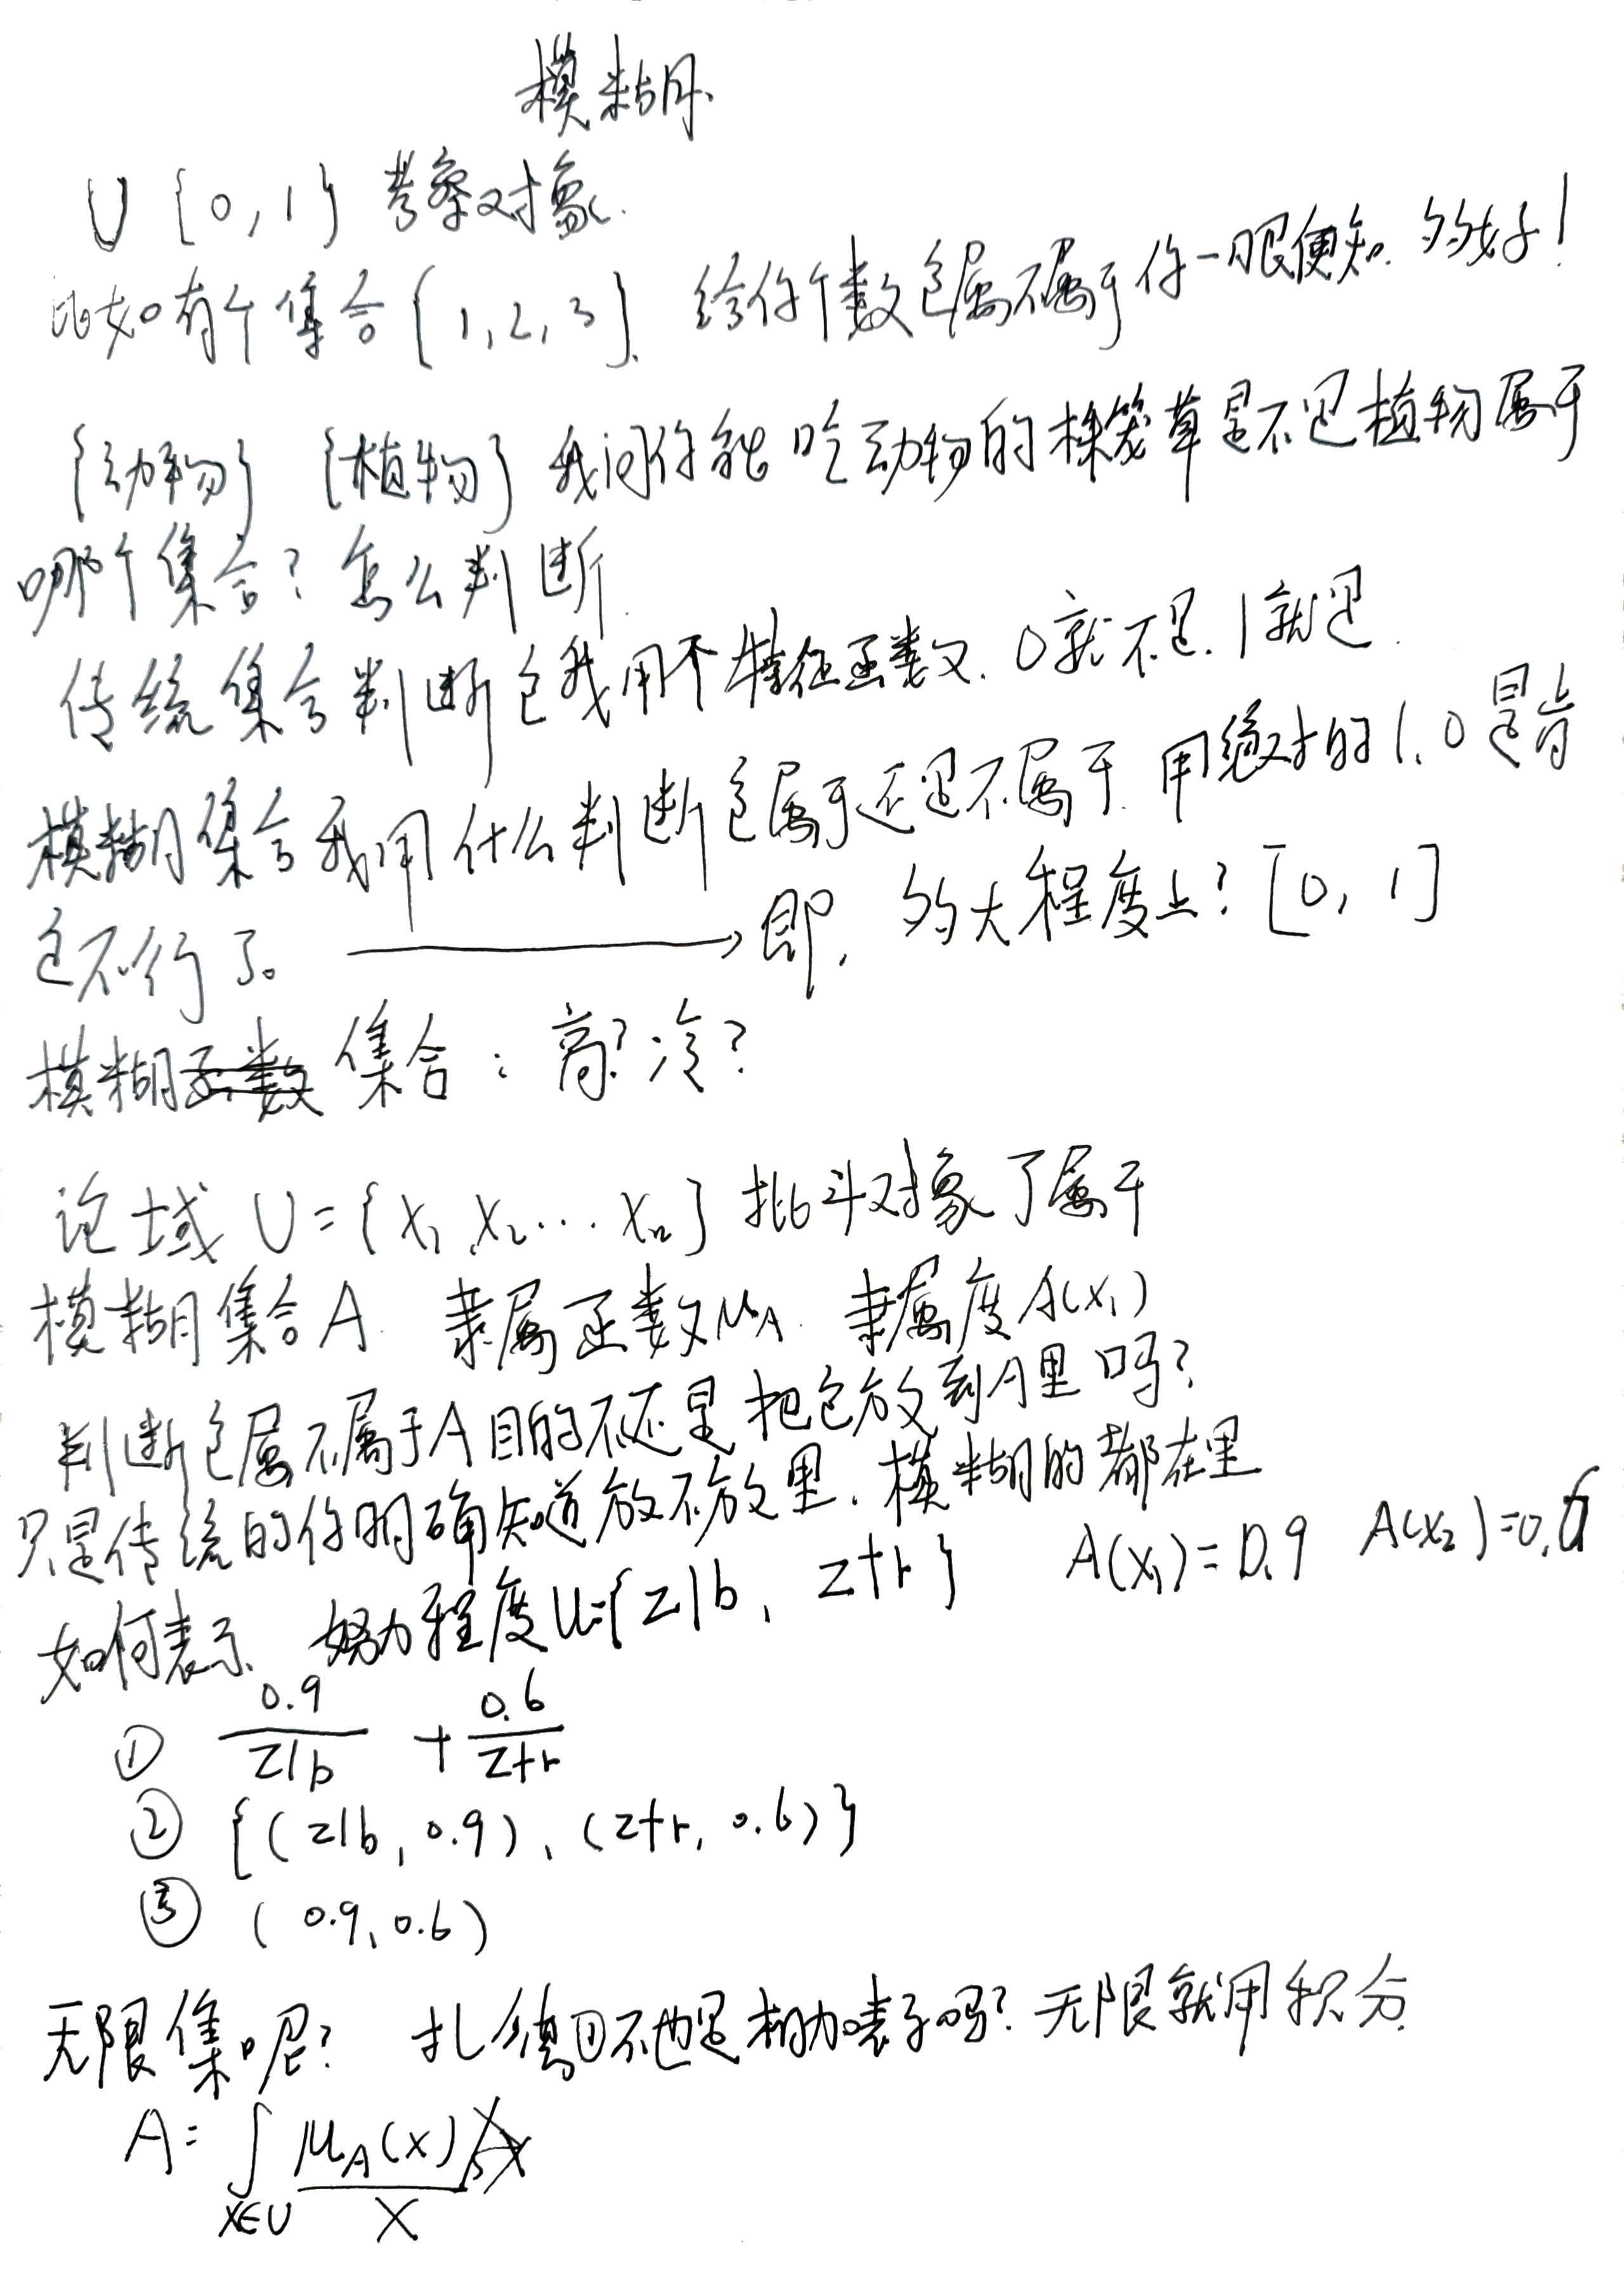 模糊
U {0,1} 考察对象.
比如有个集合{1,2,3}. 给你个数它属不属于你一眼便知. 多好!
{动物} {植物} 我问你能吃动物的猪笼草是不是植物属于
哪个集合? 怎么判断.
传统集合判断它我用个特征函数. 0就不是. 1就是.
模糊集合我用什么判断它属于还是不属于. 用绝对的1.0是肯
定不行了。 → 即, 多大程度上? [0,1]
模糊集合: 高? 冷?
论域 U={x₁,x₂...xₙ} 一对象了属于
模糊集合A 隶属函数μA. 隶属度A(x₁)
判断它属不属于A目的不还是把它放到A里吗?
只是传统的你明确知道放不放里. 模糊的都在里
如何表示. 努力程度U={zlb, ztr} A(x₁)=0.9 A(x₂)=0.6
① 0.9/zlb + 0.6/ztr
② {(zlb,0.9), (ztr,0.6)}
③ (0.9,0.6)
无限集呢? 扎德因不也是相加表示吗? 无限就用积分.
A=∫x∈U μA(x)/x